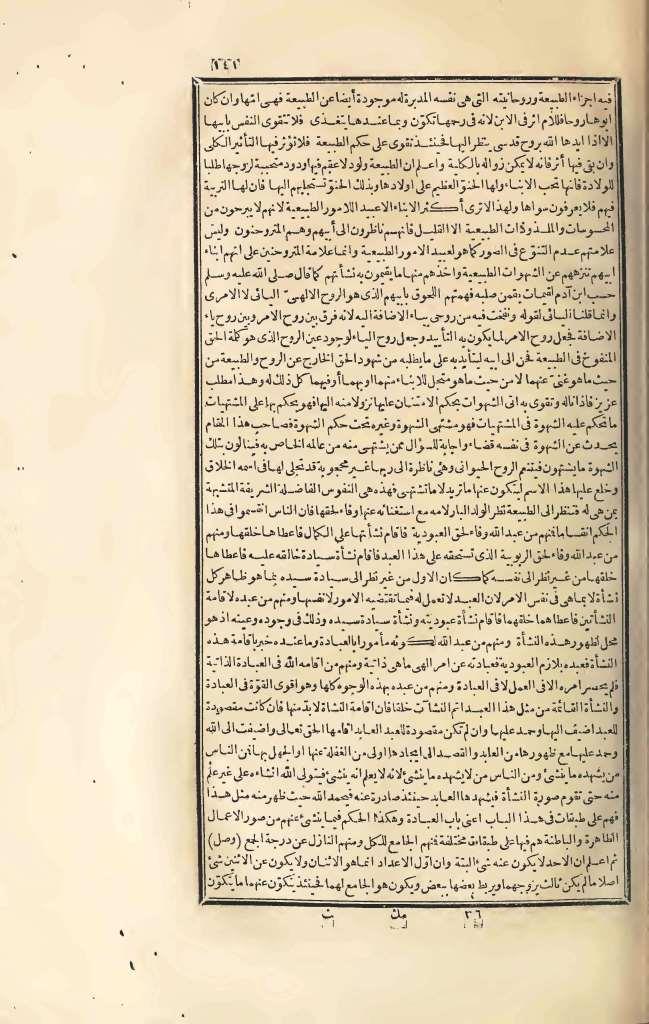 ٢٤٢
فيه اجزاء الطبيعة وروحانيته التى هى نفسه المدبرة له موجودة أيضا عن الطبيعة فهى امّها وان كان
أبوها روحا فللام اثر فى الابن لانه فى رحمها تكوّن وبما عندها يتغذى فلا تتقوى النفس بأبيها
الا اذا ايدها الله بروح قدسى ينظر اليها فحينئذ تقوى على حكم الطبيعة فلا تؤثر فيها التأثير الكلى
وان بقى فيها أثر فانه لا يمكن زواله بالكلية واعلم ان الطبيعة ولود لا عقيم فيها ودود متحببة لزوجها طلبا
للولادة فانها تحب الابناء ولها الحنوّ العظيم على اولادها وبذلك الحنوّ تستجلبهم اليها فان لها التربية
فيهم فلا يعرفون سواها ولهذا لا ترى أكثر الابناء الا عبيدا للامور الطبيعية لانهم لا يبرحون من
المحسوسات والملذوذات الطبيعية الا القليل فانهم ناظرون الى أبيهم وهم المتروحنون وليس
علامتهم عدم التنوّع فى الصور كما هو لعبيد الامور الطبيعية وانما علامة المتروحنين على انهم ابناء
ابيهم تنزههم عن الشهوات الطبيعية واخذهم منها ما يقيمون به نشأتهم كما قال صلى الله عليه وسلم
حسب ابن آدم لقيمات يقمن صلبه فهمتهم اللحوق بأبيهم الذى هو الروح الالهىّ اليائى لا الامرى
وانما قلنا اليائى لقوله ونفخت فيه من روحى بياء الاضافة اليه لانه فرق بين روح الامر وبين روح ياء
الاضافة فجعل روح الامر لما يكون به التأييد وجعل روح الياء لوجود عين الروح الذى هو كلمة الحق
المنفوخ فى الطبيعة فحن الى ابيه ليتأيد به على ما يطلبه من شهود الحق الخارج عن الروح والطبيعة من
حيث ما هو غنىّ عنهما لا من حيث ما هو متجل للابناء منهما او بهما أو فيهما كل ذلك له وهذا مطلب
عزيز فاذا ناله وتقوى به اتى الشهوات بحكم الامتنان عليها نزولا منه اليها فهو يحكم بها على المشتهيات
ما تحكم عليه الشهوة فى المشتهيات فهو مشتهى الشهوة وغيره تحت حكم الشهوة فصاحب هذا المقام
يحدث عن الشهوة فى نفسه قضاء واجابة للسؤال ممن يشتهى منه من عالمه الخاص به فينالون بتلك
الشهوة ما يشتهون فيتنعم الروح الحيوانى وهى ناظرة الى ربها غير محجوبة قد تجلى لها فى اسمه الخلاق
وخلع عليها هذا الاسم ليتكون عنها ما تريد لا ما تشتهى فهذه هى النفوس الفاضلة الشريفة المتشبهة
بمن هى له فتنظر الى الطبيعة نظر الولد البار لامه مع استغنائه عنها وفاء لحقها فان الناس انقسموا فى هذا
الحكم انقساما فمنهم من عبد الله وفاء لحق العبودية فاقام نشأتها على الكمال فاعطاها خلقها ومنهم
من عبد الله وفاء لحق الربوبية الذى تستحقه على هذا العبد فاقام نشأة سيادة خالقه عليه فاعطاها
خلقها من غير نظر الى نفسه كما كان الاول من غير نظر الى سيادة سيده بما هو ظاهر كل
نشأة لا بما هى فى نفس الامر لان العبد لا تعمل له فيما تقتضيه الامور لانفسها ومنهم من عبده لاقامة
النشأتين فاعطاهما خلقهما فاقام نشأة عبوديته ونشأة سيادة سيده وذلك فى وجوده وعينه اذ هو
محل لظهور هذه النشأة ومنهم من عبد الله لكونه مأمورا بالعبادة وما عنده خبر باقامة هذه
النشأة فعبده بلازم العبودية فعبادته عن امر الهى ما هى ذاتية ومنهم من اقامه الله فى العبادة الذاتية
فلم يحصر امره الا فى العمل لا فى العبادة ومنهم من عبده بهذه الوجوه كلها وهو اقوى القوّة فى العبادة
والنشأة القائمة من مثل هذا العبد اتم النشآت خلقا فان اقامة النشأة لا بدّ منها فان كانت مقصودة
للعبد اضيف اليها وحمد عليها وان لم تكن مقصودة للعبد العابد اقامها الحق تعالى واضيفت الى الله
وحمد عليها مع ظهورها من العابد والقصد الى ايجادها اولى من الغفلة عنها او الجهل بها فمن الناس
من يشهده ما ينشئ ومن الناس من لا يشهده ما ينشئ لانه لا يعلم انه ينشئ فيتولى الله انشاءه على غير علم
منه حتى تقوم صورة النشأة فيشهدها العابد حينئذ صادرة عنه فيحمد الله حيث ظهر منه مثل هذا
فهم على طبقات فى هذا الباب اعنى باب العبادة وهكذا الحكم فيما ينشئ عنهم من صور الاعمال
الظاهرة والباطنة هم فيها على طبقات مختلفة فمنهم الجامع للكل ومنهم النازل عن درجة الجمع (وصل)
ثم اعلم ان الاحد لا يكون عنه شئ البتة وان اول الاعداد انما هو الاثنان ولا يكون عن الاثنين شئ
اصلا ما لم يكن ثالث يزوجهما ويربط بعضهما ببعض ويكون هو الجامع لهما فحينئذ يتكوّن عنهما ما يتكوّن
٣٦ مك ث